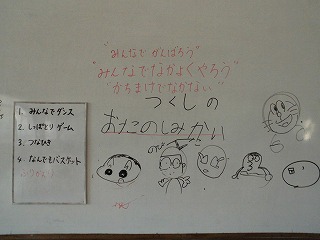 "みんなで がんばろう"
"みんなでなかよくやろう"
"かちまけでなかない"
つくしの
おたのしみかい
1. みんなでダンス
2. しっぽとりゲーム
3. つなひき
4. なんでもバスケット